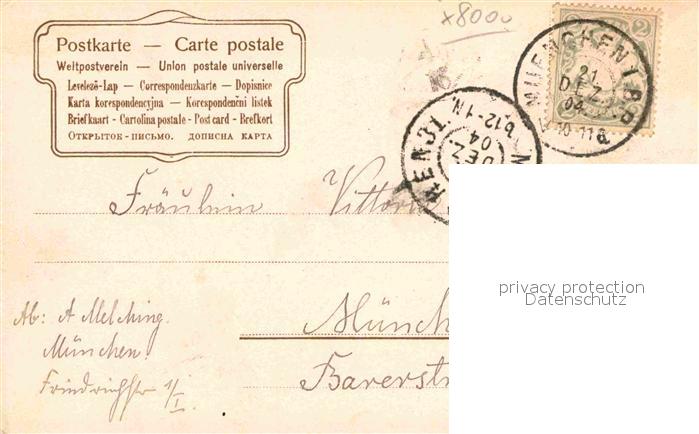 x8000
Postkarte — Carte postale
Weltpostverein — Union postale universelle
Levelező-Lap — Correspondenzkarte — Dopisnice
Karta korespondencyjna — Korespondenční listek
Briefkaart - Cartolina postale - Post card - Brefkort
ОТКРЫТОК-ПИСЬМО. ДОПИСНА КАРТА
2 2
MUENCHEN 1 BP
21
DEZ
04
HEN 31.
12-1 N
DEZ.
04
Fräulein Vittoria
privacy protection
Datenschutz
Ab: A Melching.
München.
Friedrichstr 1/I.
Münch
Barerstr